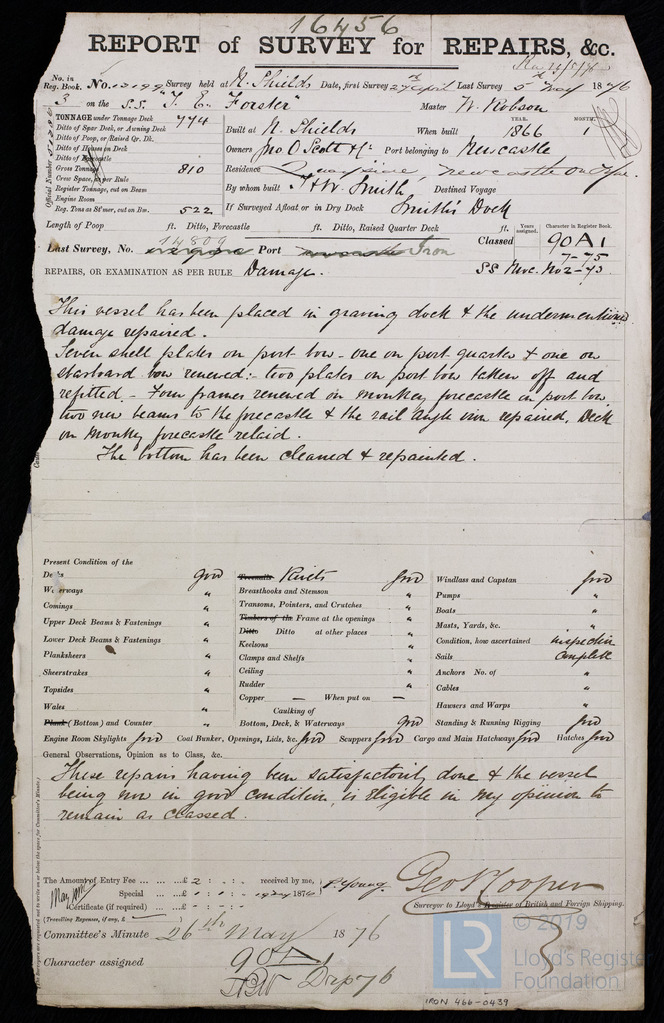 16456
REPORT of SURVEY for REPAIRS, &c.
No. in Reg. Book. No. Survey held at N. Shields Date, first Survey 27th April Last Survey 5th May 1876
3 on the S.S. "T. E. Forster" Master W. Robson
TONNAGE under Tonnage Deck 774
Ditto of Spar Deck, or Awning Deck
Ditto of Poop, or Raised Qr. Dk.
Ditto of Houses on Deck
Ditto of Forecastle
Gross Tonnage 810
Crew Space, as per Rule
Register Tonnage, cut on Beam
Engine Room
Reg. Tons as St'mer, cut on Bm. 522
Official Number
Built at N. Shields When built YEAR. 1866 MONTH. 1
Owners Jno O Scott & Co Port belonging to Newcastle
Residence Quay side, Newcastle on Tyne.
By whom built T & W. Smith Destined Voyage
If Surveyed Afloat or in Dry Dock Smith's Dock
Length of Poop ft. Ditto, Forecastle ft. Ditto, Raised Quarter Deck ft.
Years assigned. Character in Register Book.
Last Survey, No. 14809 Port Iron Classed 90A1
7-75
REPAIRS, OR EXAMINATION AS PER RULE Damage. SS Nwc. No2-73
This vessel has been placed in graving dock & the undermentioned
damage repaired.
Seven shell plates on port bow - one on port quarter & one on
starboard bow renewed:- two plates on port bow taken off and
refitted. - Four frames renewed on monkey forecastle in port bow,
two new beams to the forecastle & the rail angle iron repaired, Deck
on monkey forecastle relaid.
The bottom has been cleaned & repainted.
Present Condition of the
Decks good
Waterways "
Comings "
Upper Deck Beams & Fastenings "
Lower Deck Beams & Fastenings "
Planksheers "
Sheerstrakes "
Topsides "
Wales "
Plank (Bottom) and Counter "
Treenails Rivets good
Breasthooks and Stemson "
Transoms, Pointers, and Crutches "
Timbers of the Frame at the openings "
Ditto Ditto at other places "
Keelsons "
Clamps and Shelfs "
Ceiling "
Rudder "
Copper — When put on —
Caulking of
Bottom, Deck, & Waterways good
Windlass and Capstan good
Pumps "
Boats "
Masts, Yards, &c. "
Condition, how ascertained inspection
Sails complete
Anchors No. of "
Cables "
Hawsers and Warps "
Standing & Running Rigging good
Engine Room Skylights good Coal Bunker, Openings, Lids, &c. good Scuppers good Cargo and Main Hatchways good Hatches good
General Observations, Opinion as to Class, &c.
These repairs having been satisfactorily done & the vessel
being now in good condition, is eligible in my opinion to
remain as classed.
The Amount of Entry Fee £ 2 : - : - received by me,
Special £ : : 1876
Certificate (if required) £ - : - : -
(Travelling Expenses, if any, £
Surveyor to Lloyd's Register of British and Foreign Shipping.
Committee's Minute 26th May 1876
Character assigned 90A1
© 2019
LR Lloyd's Register
Foundation
IRON 466-0439